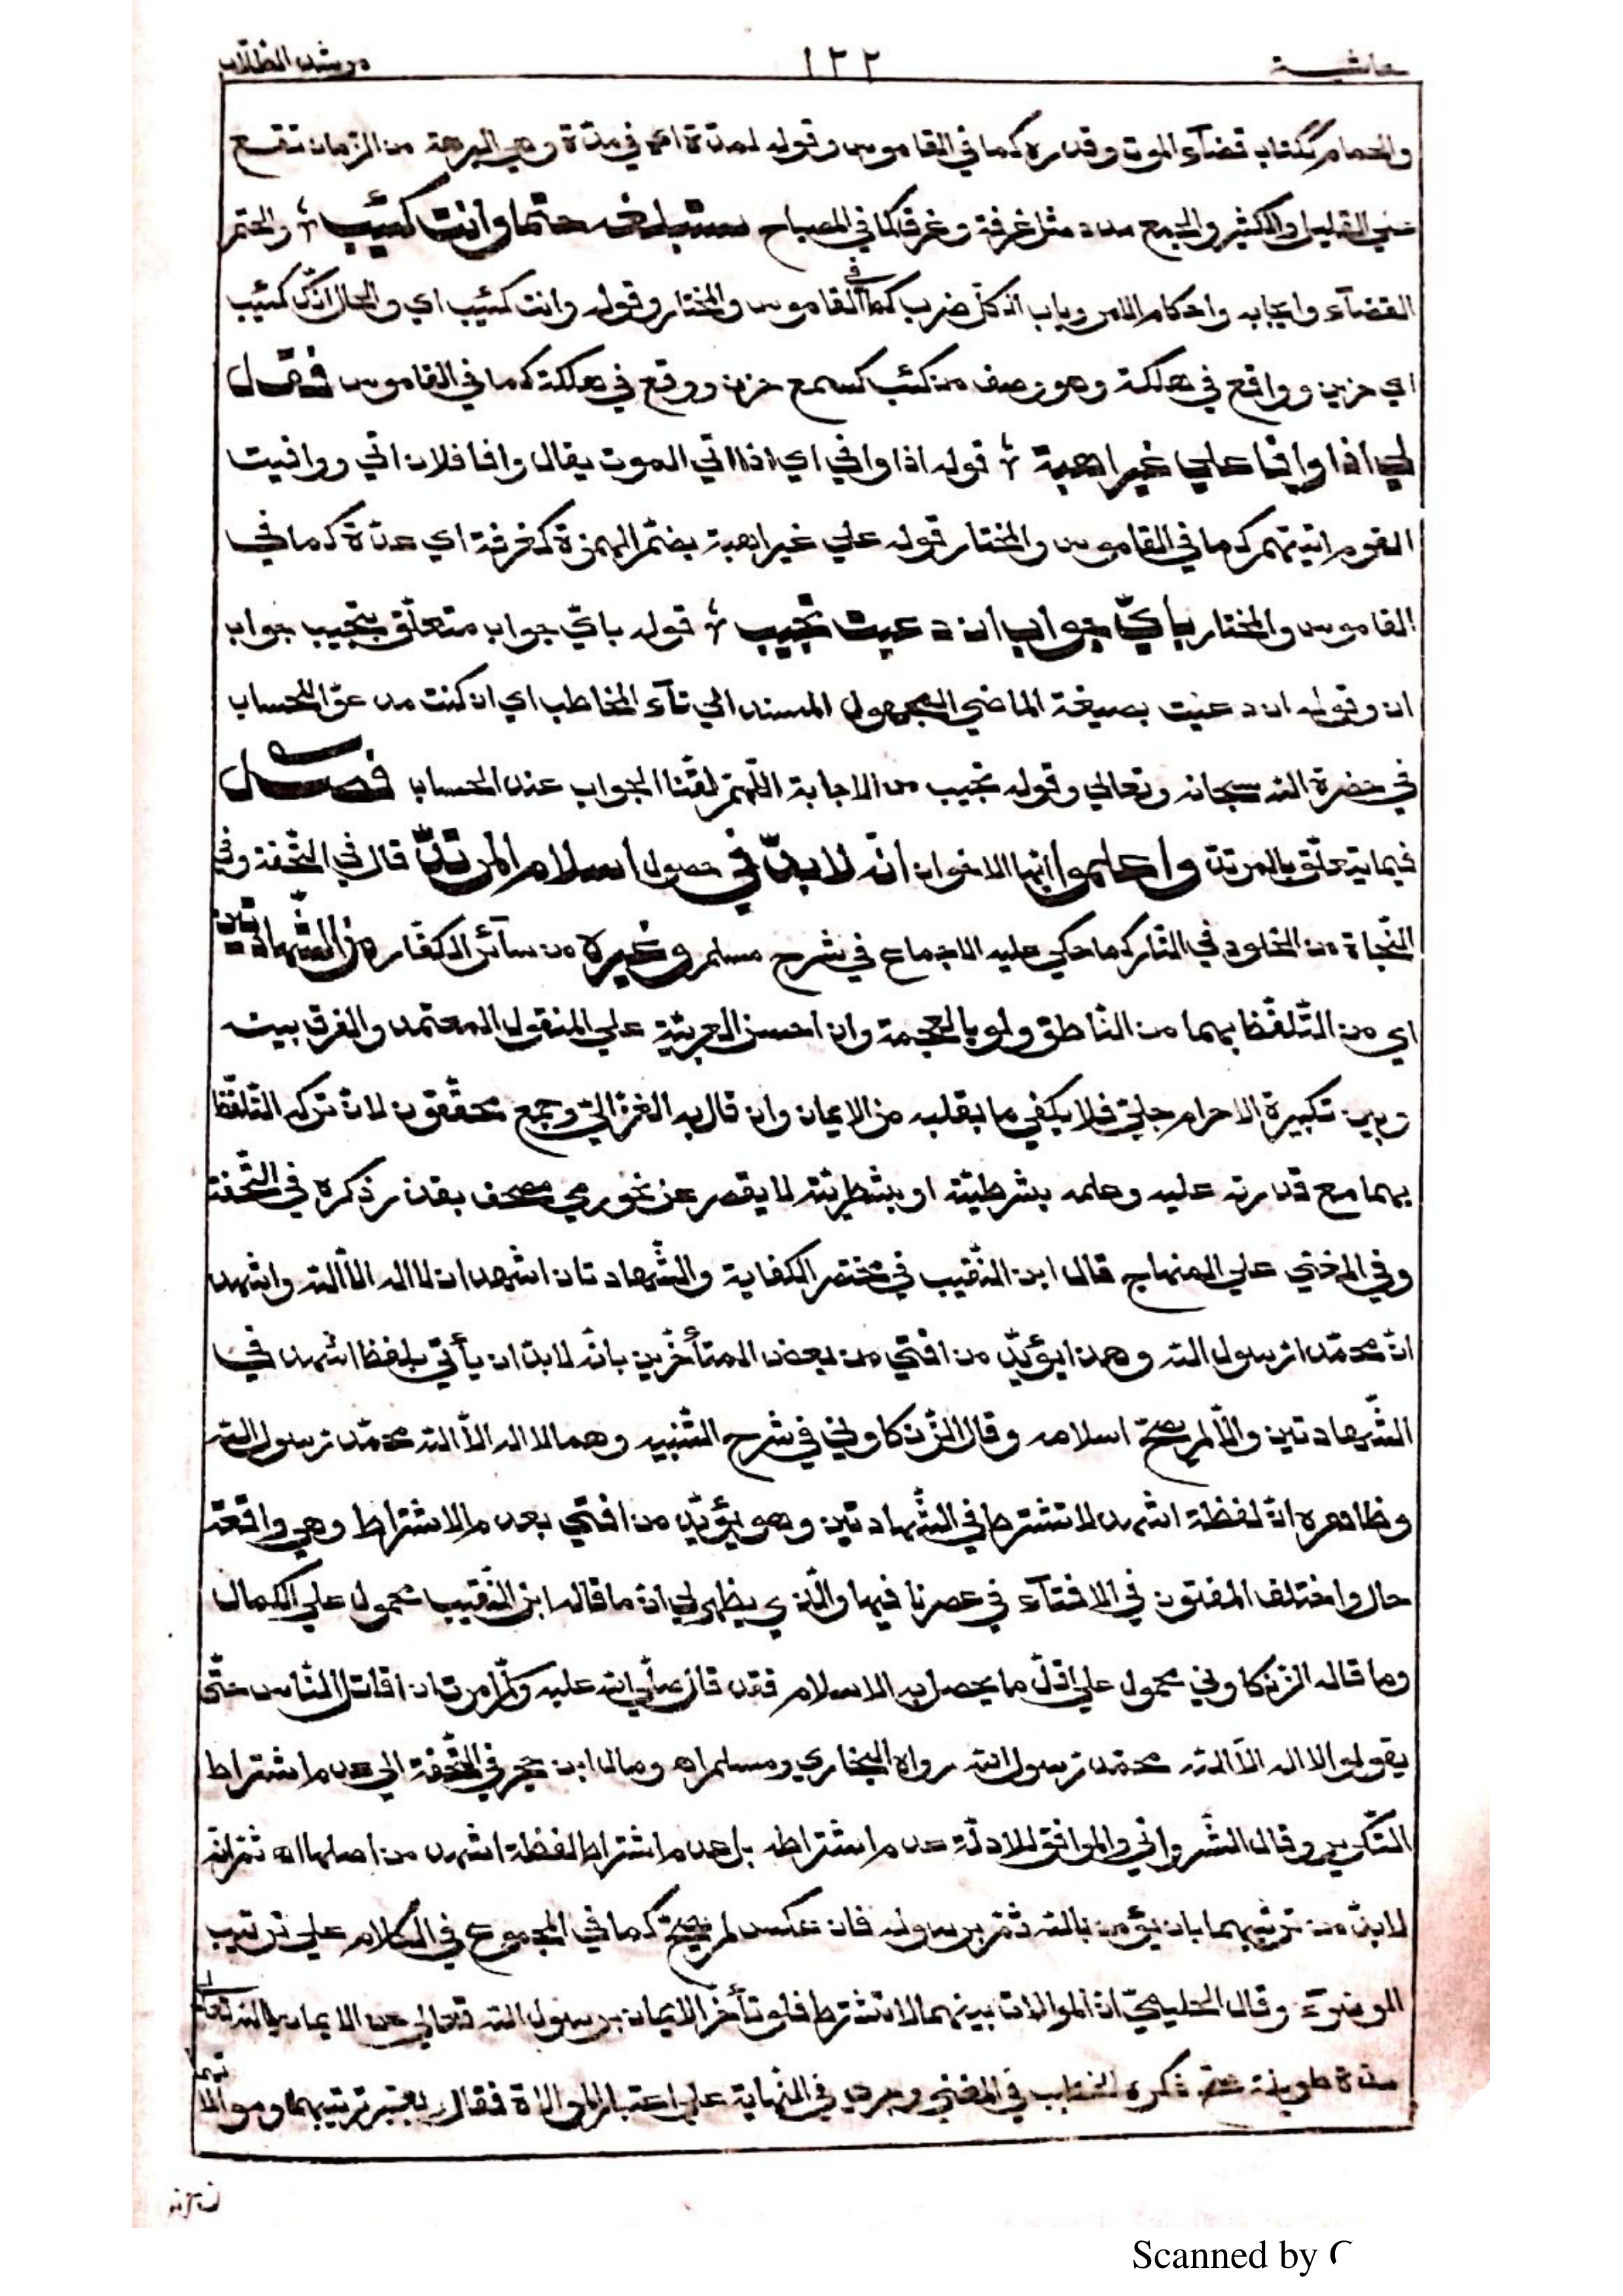 حاشية ١٣٢ مرشد الطلاب
والحمام ككتاب قضآء الموت وقدره كما في القاموس وقوله لمدّة اي في مدّة وهي البرهة من الزمان تقع
علي القليل والكثير والجمع مدد مثل غرفة وغرف كما في المصباح ستبلغه حتما وانت كئيب ؛ والحتم
القضآء وايجابه واحكام الامر وباب الكلّ ضرب كما في القاموس والمختار وقوله وانت كئيب اي والحال انّك كئيب
اي حزين وواقع في هلكة وهو وصف من كئب كسمع حزن ووقع في هلكة كما في القاموس فقل
لي اذا وافا علي غير اهبة ؛ قوله اذا وافي اي اذا اتي الموت يقال وافا فلان اتي ووافيت
القوم اتيتهم كما في القاموس والمختار قوله علي غير اهبة بضمّ الهمزة كغرفة اي عدّة كما في
القاموس والمختار بأيّ جواب ان دعيت تجيب ؛ قوله بايّ جواب متعلّق بتجيب جواب
ان وقوله ان دعيت بصيغة الماضي المجهول المسند الي تآء المخاطب اي ان كنت مدعوّا للحساب
في حضرة الله سبحانه وتعالي وقوله تجيب من الاجابة اللّهمّ لقّنّا الجواب عند الحساب فصل
فيما يتعلّق بالمرتدّ واعلموا ايّها الاخوان انّه لا بدّ في حصول اسلام المرتدّ قال في التّحفة وفي
النّجاة من الخلود في النّار كما حكي عليه الاجماع في شرح مسلم وغيره من سآئر الكفّار من الشّهادتين
اي من التّلفّظ بهما من النّاطق ولو بالعجمة وان احسن العربيّة علي المنقول المعتمد والفرق بينه
وبين تكبيرة الاحرام جليّ فلا يكفي ما بقلبه من الايمان وان قال به الغزاليّ وجمع محقّقون لانّ تركه التّلفّظ
بهما مع قدرته عليه وعلمه بشرطيّته او بشطريّته لا يقصر عن نحو رمي مصحف بقذر ذكره في التّحفة
وفي المغني علي المنهاج قال ابن النّقيب في مختصر الكفاية والشّهادتان اشهد ان لا اله الّا الله واشهد
انّ محمّدا رسول الله وهذا يؤيّد من افتي من بعض المتأخّرين بانّه لا بدّ ان يأتي بلفظ اشهد في
الشّهادتين والّا لم يصحّ اسلامه وقال الزّنكلوني في شرح التّنبيه وهما لا اله الّا الله محمّد رسول الله
وظاهره انّ لفظة اشهد لا تشترط في الشّهادتين وهو يؤيّد من افتي بعدم الاشتراط وهي واقعة
حال واختلف المفتون في الافتآء في عصرنا فيها والّذي يظهر لي انّ ما قاله ابن النّقيب محمول علي الكمال
وما قاله الزّنكلوني محمول علي اقلّ ما يحصل به الاسلام فقد قال صلّي الله عليه وسلّم امرت ان اقاتل النّاس حتّي
يقولوا لا اله الّا الله محمّد رسول الله رواه البخاري ومسلم اه ومال ابن حجر في التّحفة الي عدم اشتراط
التّكرير وقال الشّرواني والموافق للادلّة عدم اشتراطه بل عدم اشتراط لفظة اشهد من اصلها اه ثمّ انّه
لا بدّ من ترتيبهما بان يؤمن بالله ثمّ برسوله فان عكس لم يصحّ كما في المجموع في الكلام علي ترتيب
الوضوء وقال الحليميّ انّ الموالاة بينهما لا تشترط فلو تأخّر الايمان برسول الله تعالي عن الايمان بالله تعالي
مدّة طويلة صحّ ذكره الخطيب في المغني وجري في النّهاية علي اعتبار الموالاة فقال يعتبر ترتيبهما وموالاتهما